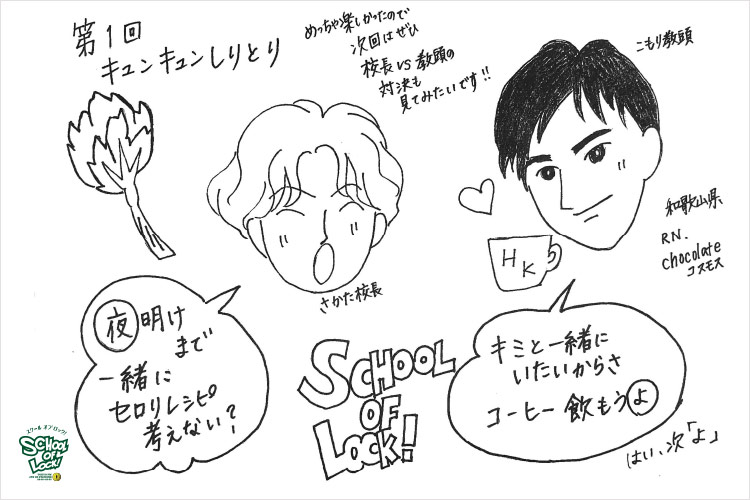 第1回
キュンキュンしりとり
めっちゃ楽しかったので
次回はぜひ
校長 VS 教頭の
対決も
見てみたいです!!
こもり教頭
和歌山県
RN.
chocolate
コスモス
HK
さかた校長
夜明け
まで
一緒に
セロリレシピ
考えない?
SCHOOL
OF
LOCK!
キミと一緒に
いたいからさ
コーヒー飲もうよ
はい、次「よ」
スクール オブ ロック!
SCHOOL
OF
LOCK!